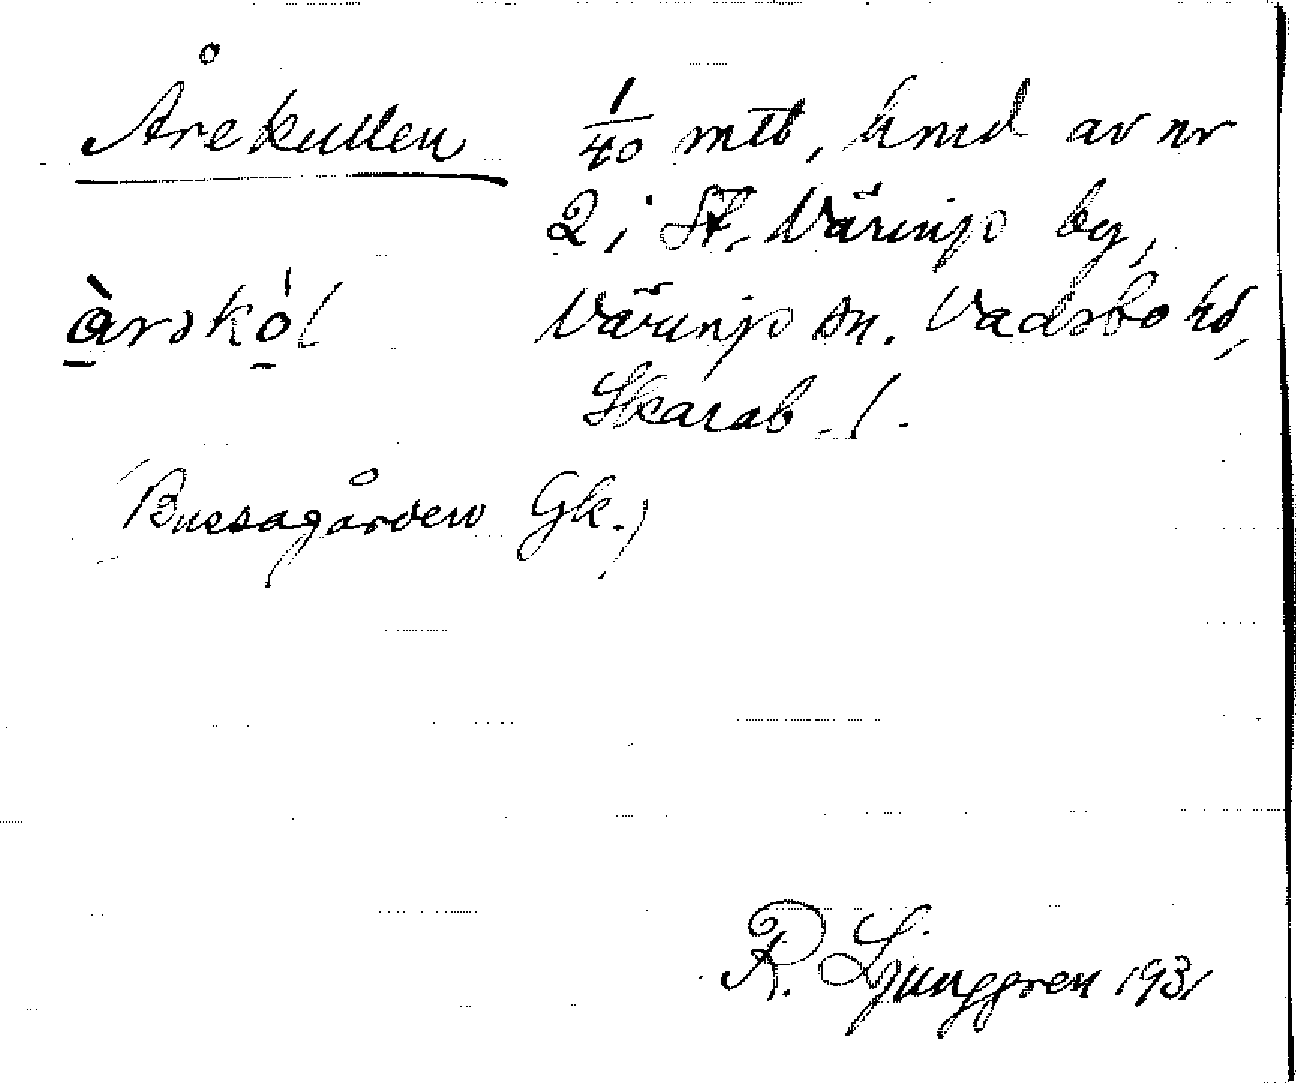 Årekullen 1/40 mtl, hmd av nr
2 i St. Väringe by,
Väringe sn. Vadsbo hd,
àrskól
Skarab. l.
(Bussagården Gk.)
R. Ljunggren 1931